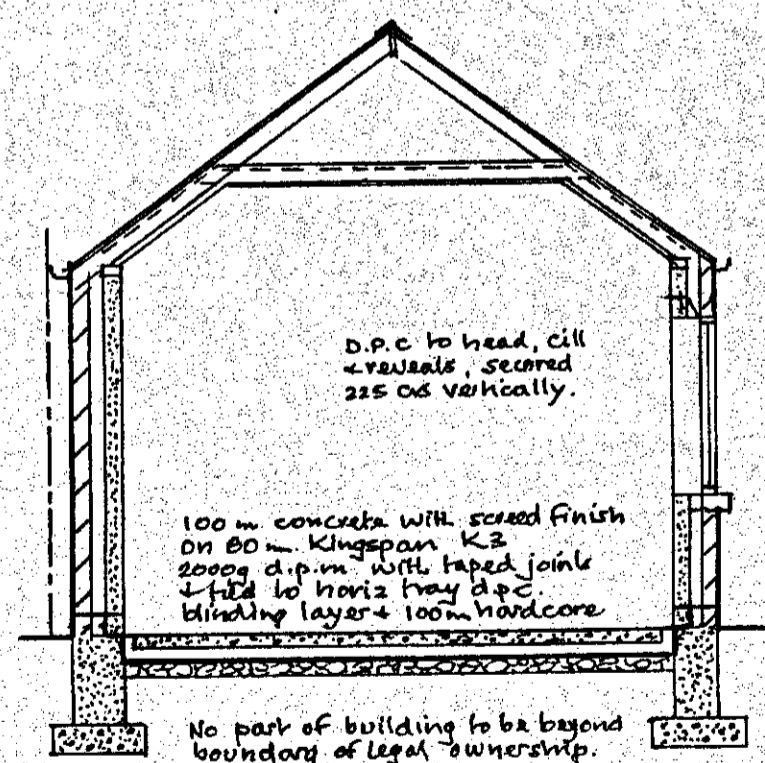 D.P.C to head, cill
+ reveals, secured
225 c/s vertically.
100 m. concrete with screed finish
on 80 m. Kingspan K3
2000g d.p.m. with taped joints
+ to horiz tray d.p.c.
blinding layer + 100m hardcore
No part of building to be beyond
boundary of legal ownership.